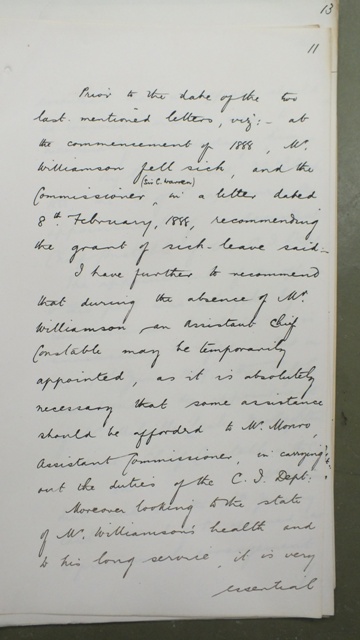 13
11
Prior to the date of the two
last mentioned letters, viz:- at
the commencement of 1888, Mr.
Williamson fell sick, and the
(Sir C. Warren)
Commissioner, in a letter dated
8th February, 1888, recommending
the grant of sick-leave said:-
I have further to recommend
that during the absence of Mr.
Williamson an Assistant Chief
Constable may be temporarily
appointed, as it is absolutely
necessary that some assistance
should be afforded to Mr. Monro,
Assistant Commissioner, in carrying
out the duties of the C. I. Dept:
Moreover looking to the state
of Mr. Williamson's health and
to his long service, it is very
essential